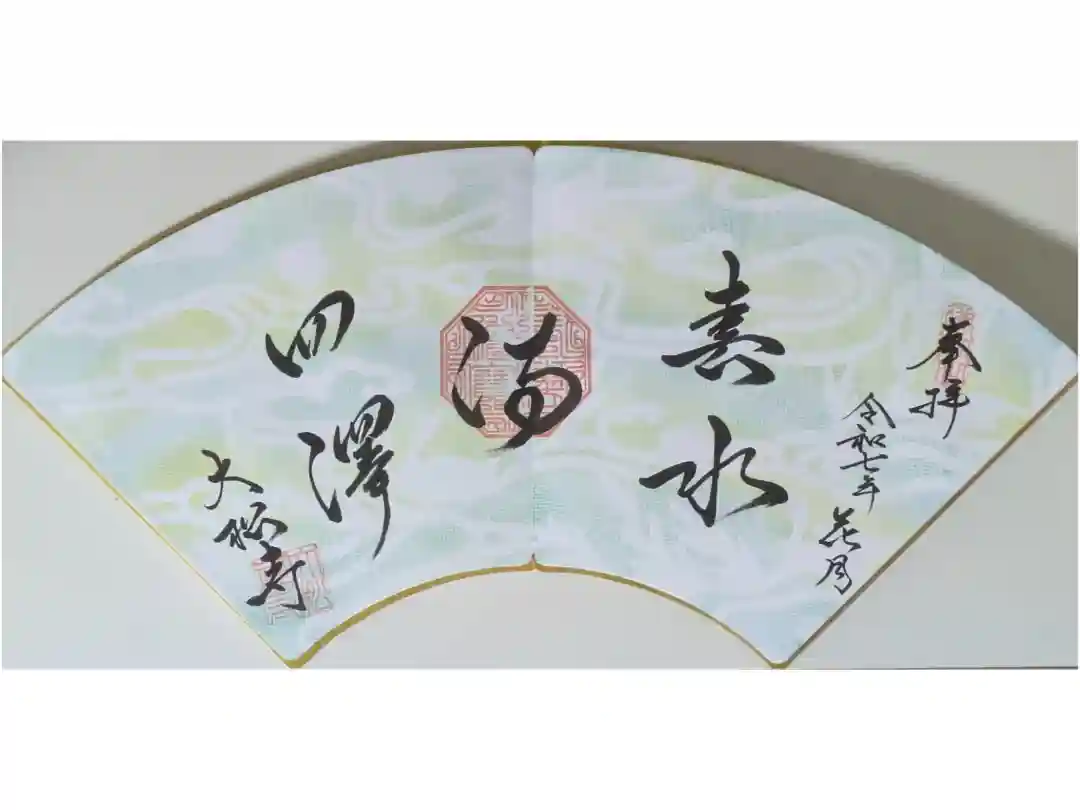 奉拝
令和七年
花月
春水
満
四澤